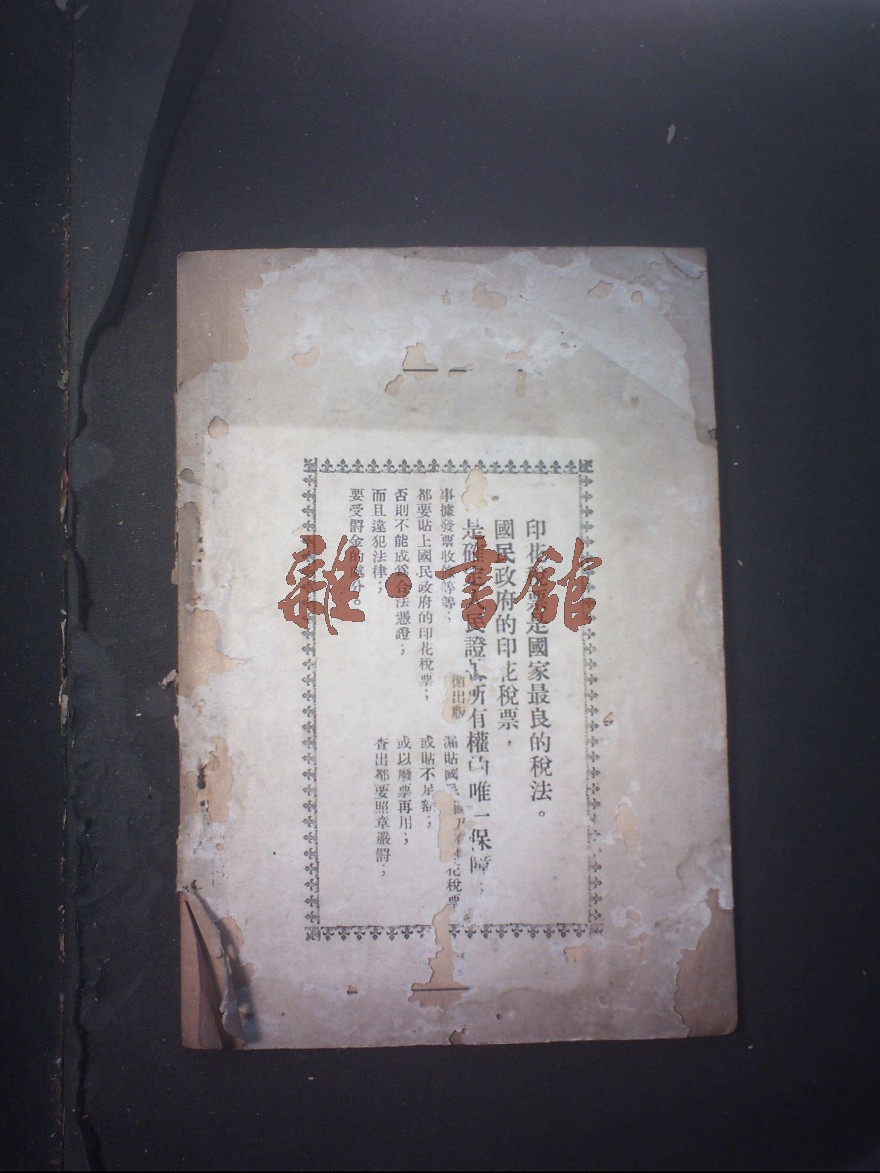 印花稅票是國家最良的稅法。
國民政府的印花稅票，
是確定民證所有權唯一保障；
事據發票收等等；
都要貼上國民政府的印花稅票；
否則不能成為合法憑證；
而且違犯法律；
要受罰金的處分。
出版
漏貼國花稅票
或貼不足額；
或以廢票再用；
查出都要照章嚴罰；
雜·書館